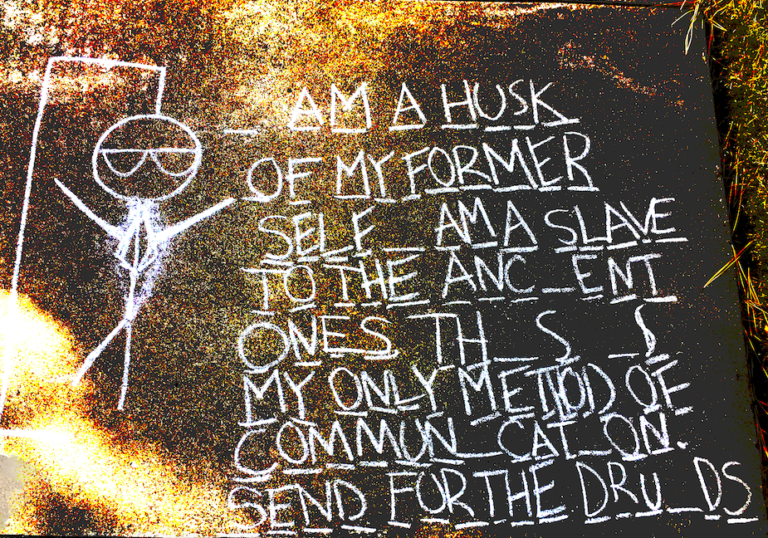 _ AM A HUSK
OF MY FORMER
SELF _ AM A SLAVE
TO THE ANC_ENT
ONES TH_S _S
MY ONLY METHOD OF
COMMUN_CAT_ON.
SEND FOR THE DRU_DS